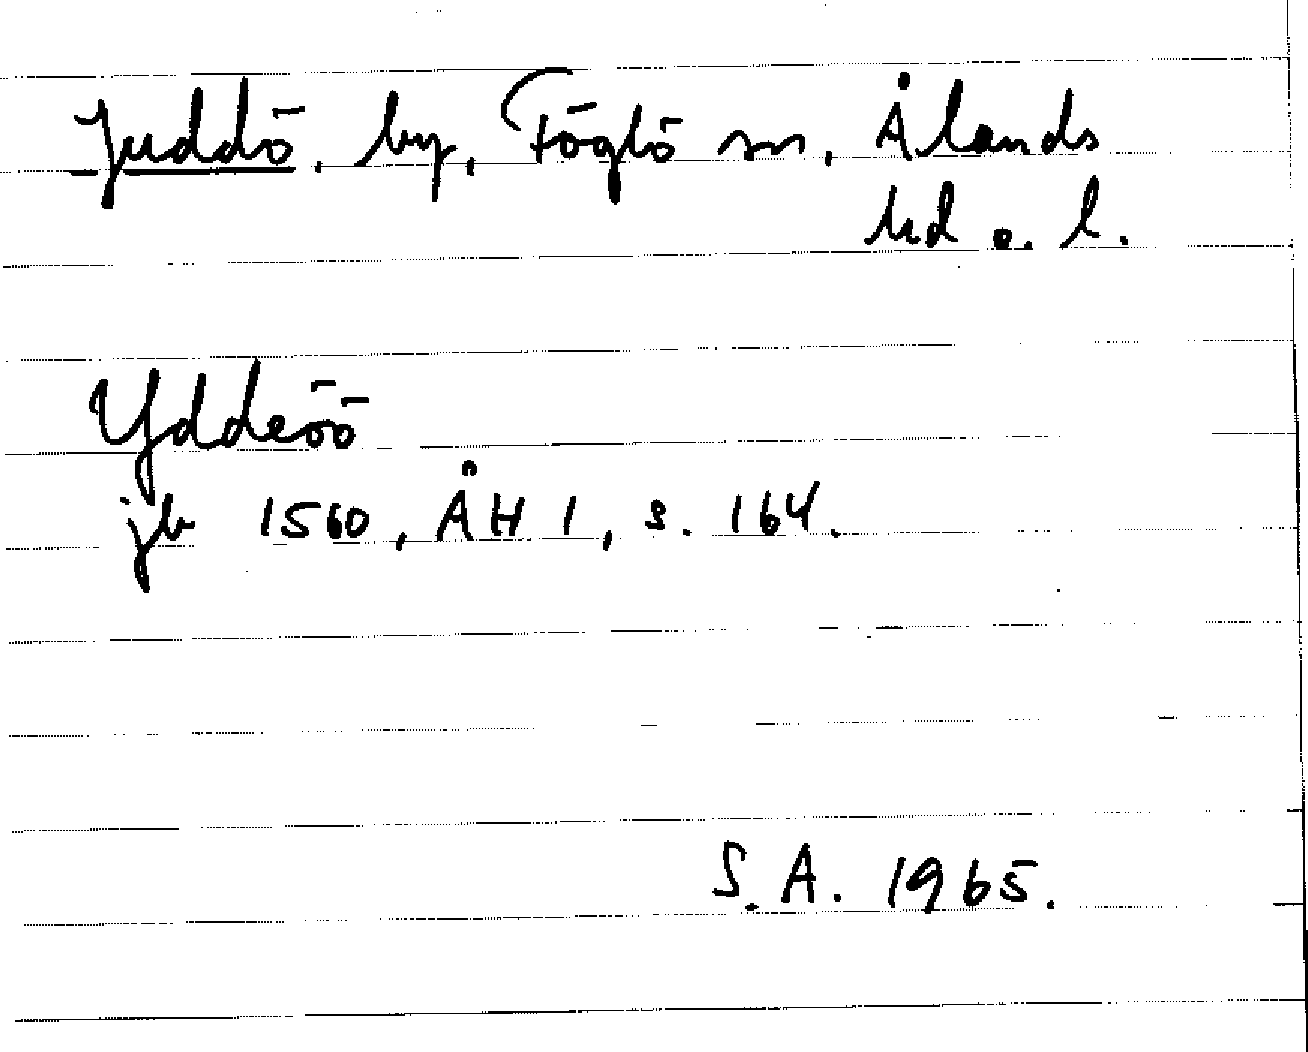 Juddö, by, Föglö sn, Ålands
hd o. l.
Yddeöö
jb 1560, ÅH 1, s. 164.
S.A. 1965.